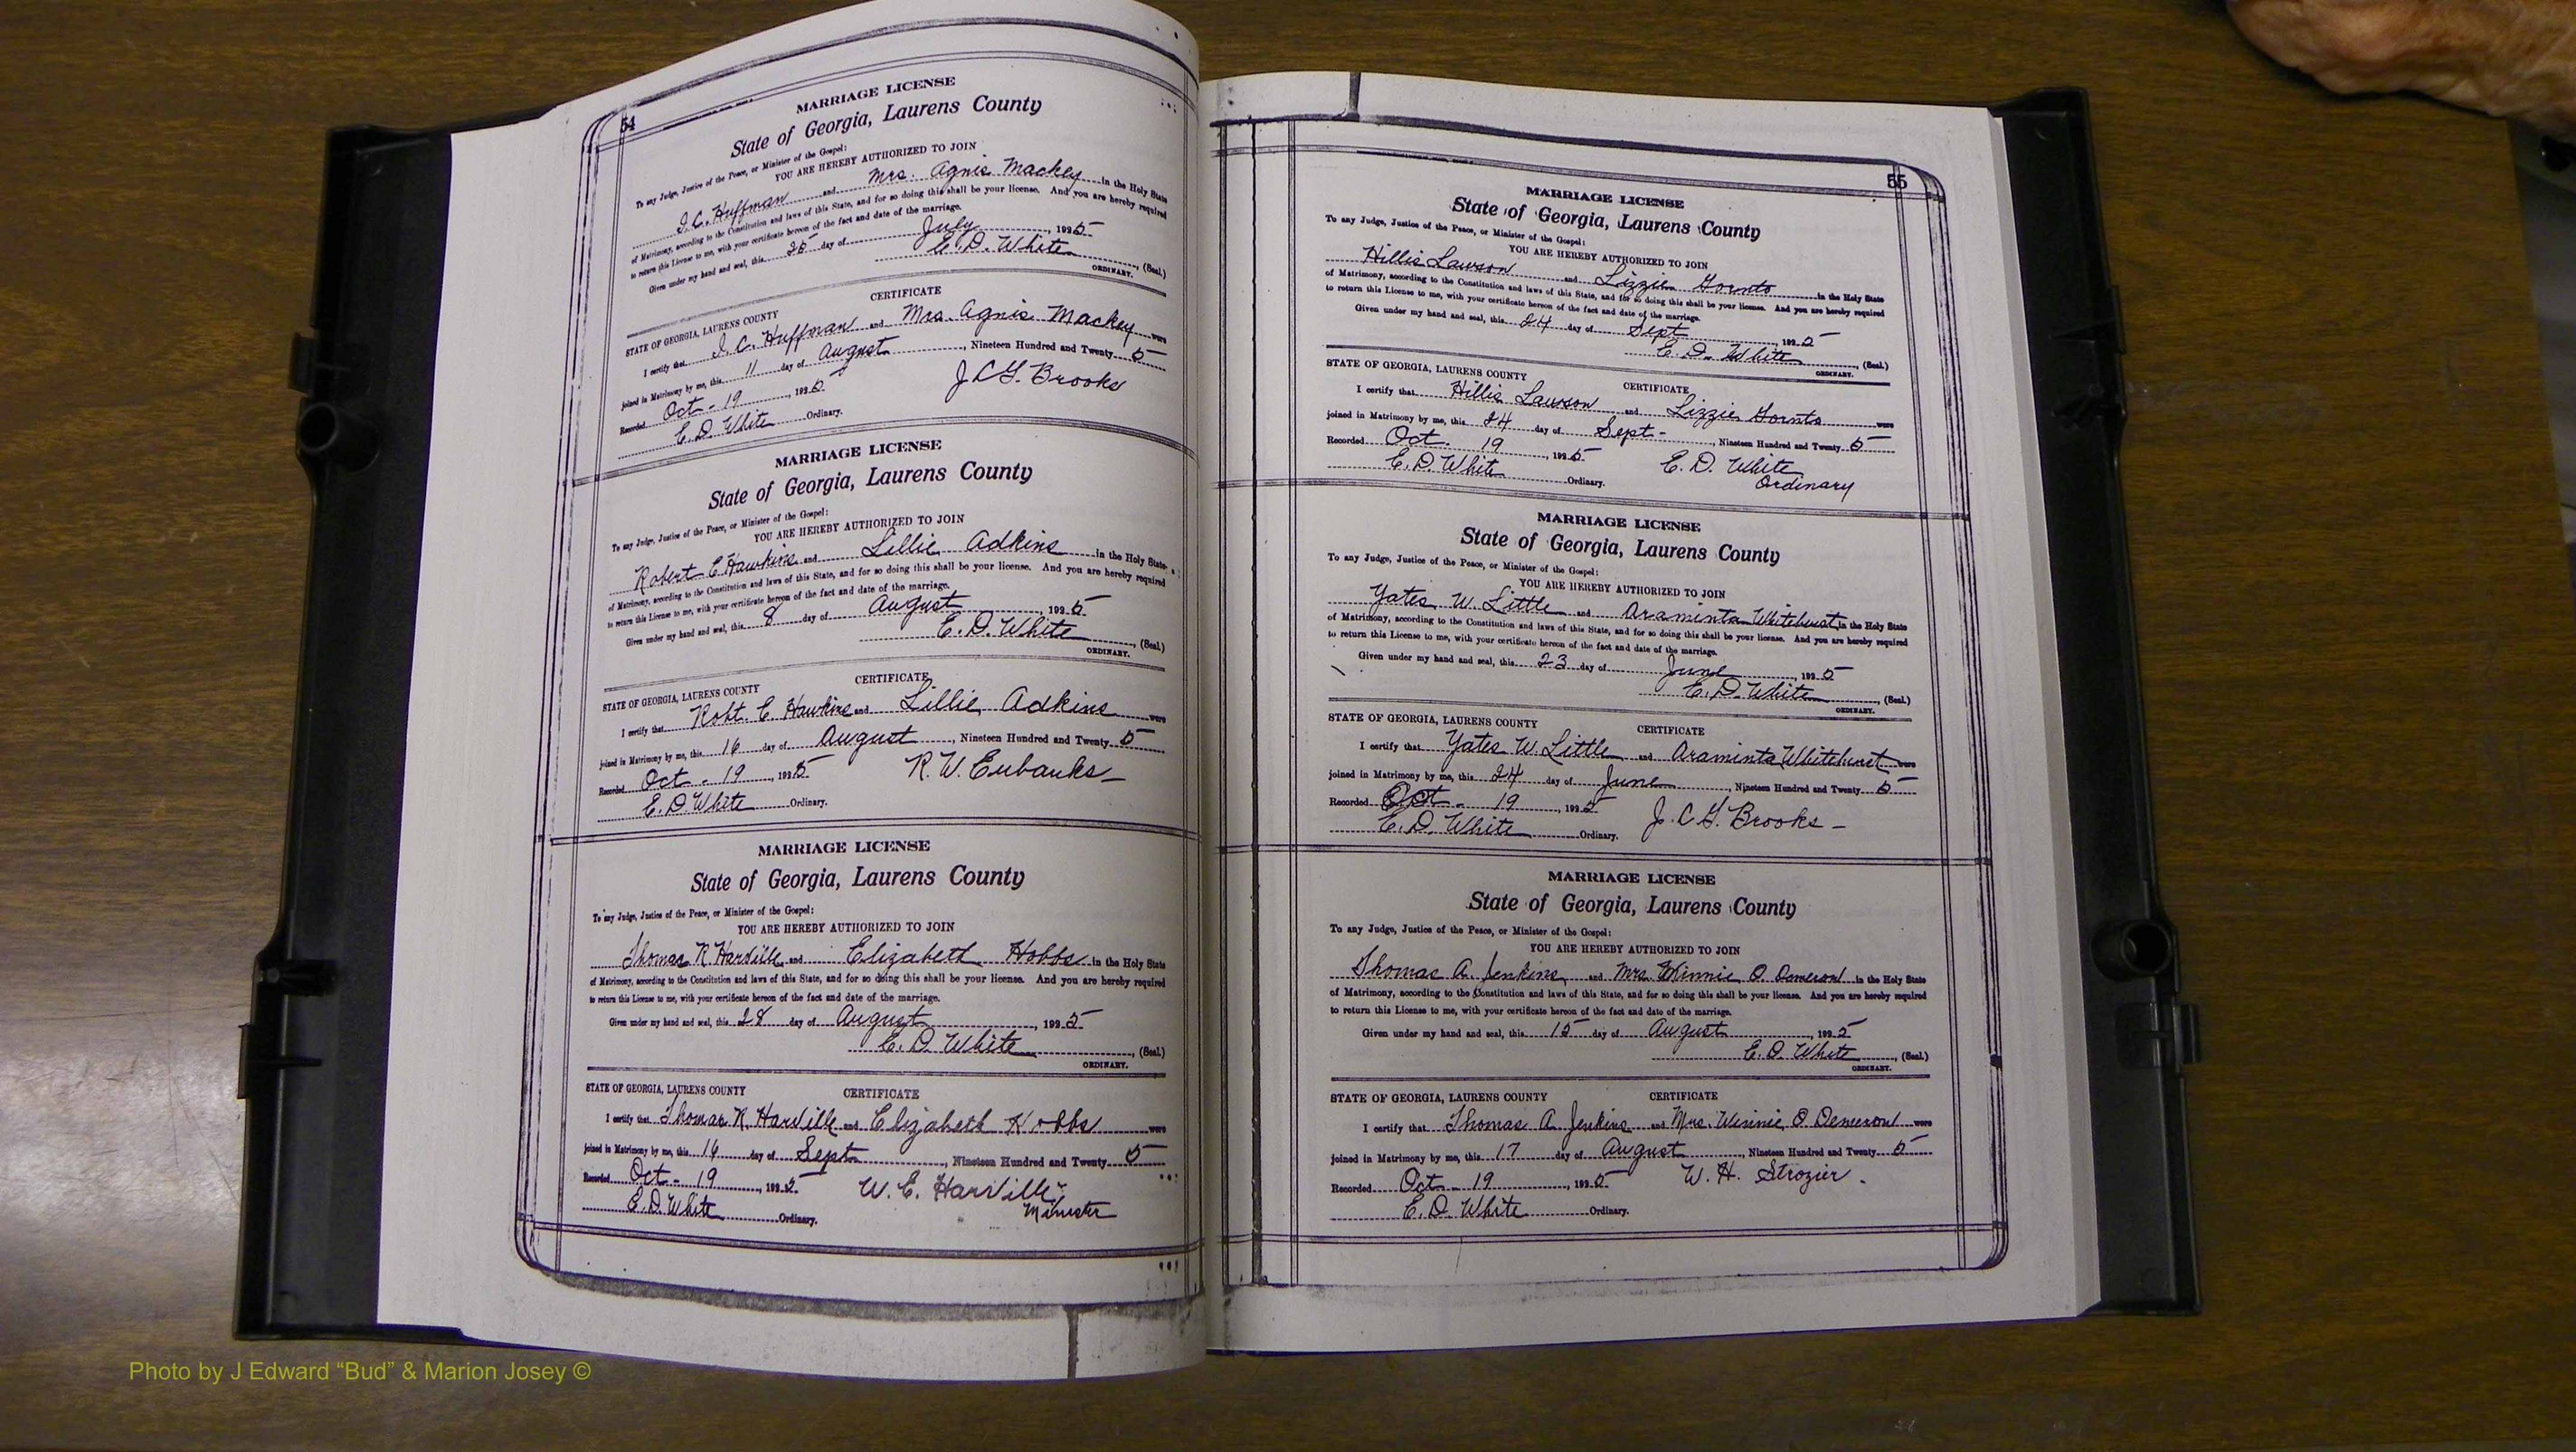 54
MARRIAGE LICENSE
State of Georgia, Laurens County
To any Judge, Justice of the Peace, or Minister of the Gospel:
YOU ARE HEREBY AUTHORIZED TO JOIN
J. C. Huffman and Mrs. Agnis Mackey in the Holy State
of Matrimony, according to the Constitution and laws of this State, and for so doing this shall be your license. And you are hereby required
to return this License to me, with your certificate hereon of the fact and date of the marriage.
Given under my hand and seal, this 25 day of July, 1925
E. D. White, (Seal.)
ORDINARY.
CERTIFICATE
STATE OF GEORGIA, LAURENS COUNTY
I certify that J. C. Huffman and Mrs. Agnis Mackey were
joined in Matrimony by me, this 11 day of August, Nineteen Hundred and Twenty 5
Recorded Oct - 19, 1925 J C G. Brooks
E. D. White Ordinary.
MARRIAGE LICENSE
State of Georgia, Laurens County
To any Judge, Justice of the Peace, or Minister of the Gospel:
YOU ARE HEREBY AUTHORIZED TO JOIN
Robert E Hawkins and Lillie Adkins in the Holy State
of Matrimony, according to the Constitution and laws of this State, and for so doing this shall be your license. And you are hereby required
to return this License to me, with your certificate hereon of the fact and date of the marriage.
Given under my hand and seal, this 8 day of August, 1925
E. D. White, (Seal.)
ORDINARY.
CERTIFICATE
STATE OF GEORGIA, LAURENS COUNTY
I certify that Robt. E. Hawkins and Lillie Adkins were
joined in Matrimony by me, this 16 day of August, Nineteen Hundred and Twenty 5
Recorded Oct - 19, 1925 R. W. Eubanks
E. D White Ordinary.
MARRIAGE LICENSE
State of Georgia, Laurens County
To any Judge, Justice of the Peace, or Minister of the Gospel:
YOU ARE HEREBY AUTHORIZED TO JOIN
Thomas R Harville and Elizabeth Hobbs in the Holy State
of Matrimony, according to the Constitution and laws of this State, and for so doing this shall be your license. And you are hereby required
to return this License to me, with your certificate hereon of the fact and date of the marriage.
Given under my hand and seal, this 28 day of August, 1925
E. D. White, (Seal.)
ORDINARY.
STATE OF GEORGIA, LAURENS COUNTY CERTIFICATE
I certify that Thomas R. Harville and Elizabeth Hobbs were
joined in Matrimony by me, this 16 day of Sept, Nineteen Hundred and Twenty 5
Recorded Oct - 19, 1925 W. E. Harville
E. D. White Ordinary. Minister
55
MARRIAGE LICENSE
State of Georgia, Laurens County
To any Judge, Justice of the Peace, or Minister of the Gospel:
YOU ARE HEREBY AUTHORIZED TO JOIN
Hillis Lawson and Lizzie Gornto in the Holy State
of Matrimony, according to the Constitution and laws of this State, and for so doing this shall be your license. And you are hereby required
to return this License to me, with your certificate hereon of the fact and date of the marriage.
Given under my hand and seal, this 24 day of Sept, 1925
E. D. White, (Seal.)
ORDINARY.
STATE OF GEORGIA, LAURENS COUNTY CERTIFICATE
I certify that Hillis Lawson and Lizzie Gornto were
joined in Matrimony by me, this 24 day of Sept -, Nineteen Hundred and Twenty 5
Recorded Oct. 19, 1925 E. D. White
E. D. White Ordinary. Ordinary
MARRIAGE LICENSE
State of Georgia, Laurens County
To any Judge, Justice of the Peace, or Minister of the Gospel:
YOU ARE HEREBY AUTHORIZED TO JOIN
Yates W. Little and Araminta Whitehurst in the Holy State
of Matrimony, according to the Constitution and laws of this State, and for so doing this shall be your license. And you are hereby required
to return this License to me, with your certificate hereon of the fact and date of the marriage.
Given under my hand and seal, this 23 day of June, 1925
E. D. White, (Seal.)
ORDINARY.
STATE OF GEORGIA, LAURENS COUNTY CERTIFICATE
I certify that Yates W. Little and Araminta Whitehurst were
joined in Matrimony by me, this 24 day of June, Nineteen Hundred and Twenty 5
Recorded Oct - 19, 1925 J. C G. Brooks -
E. D. White Ordinary.
MARRIAGE LICENSE
State of Georgia, Laurens County
To any Judge, Justice of the Peace, or Minister of the Gospel:
YOU ARE HEREBY AUTHORIZED TO JOIN
Thomas A. Jenkins and Mrs. Winnie O. in the Holy State
of Matrimony, according to the Constitution and laws of this State, and for so doing this shall be your license. And you are hereby required
to return this License to me, with your certificate hereon of the fact and date of the marriage.
Given under my hand and seal, this 15 day of August, 1925
E. D. White, (Seal.)
ORDINARY.
STATE OF GEORGIA, LAURENS COUNTY CERTIFICATE
I certify that Thomas A. Jenkins and Mrs. Winnie O. were
joined in Matrimony by me, this 17 day of August, Nineteen Hundred and Twenty 5
Recorded Oct - 19, 1925 W. H. Strozier.
E. D. White Ordinary.
Photo by J Edward “Bud” & Marion Josey ©